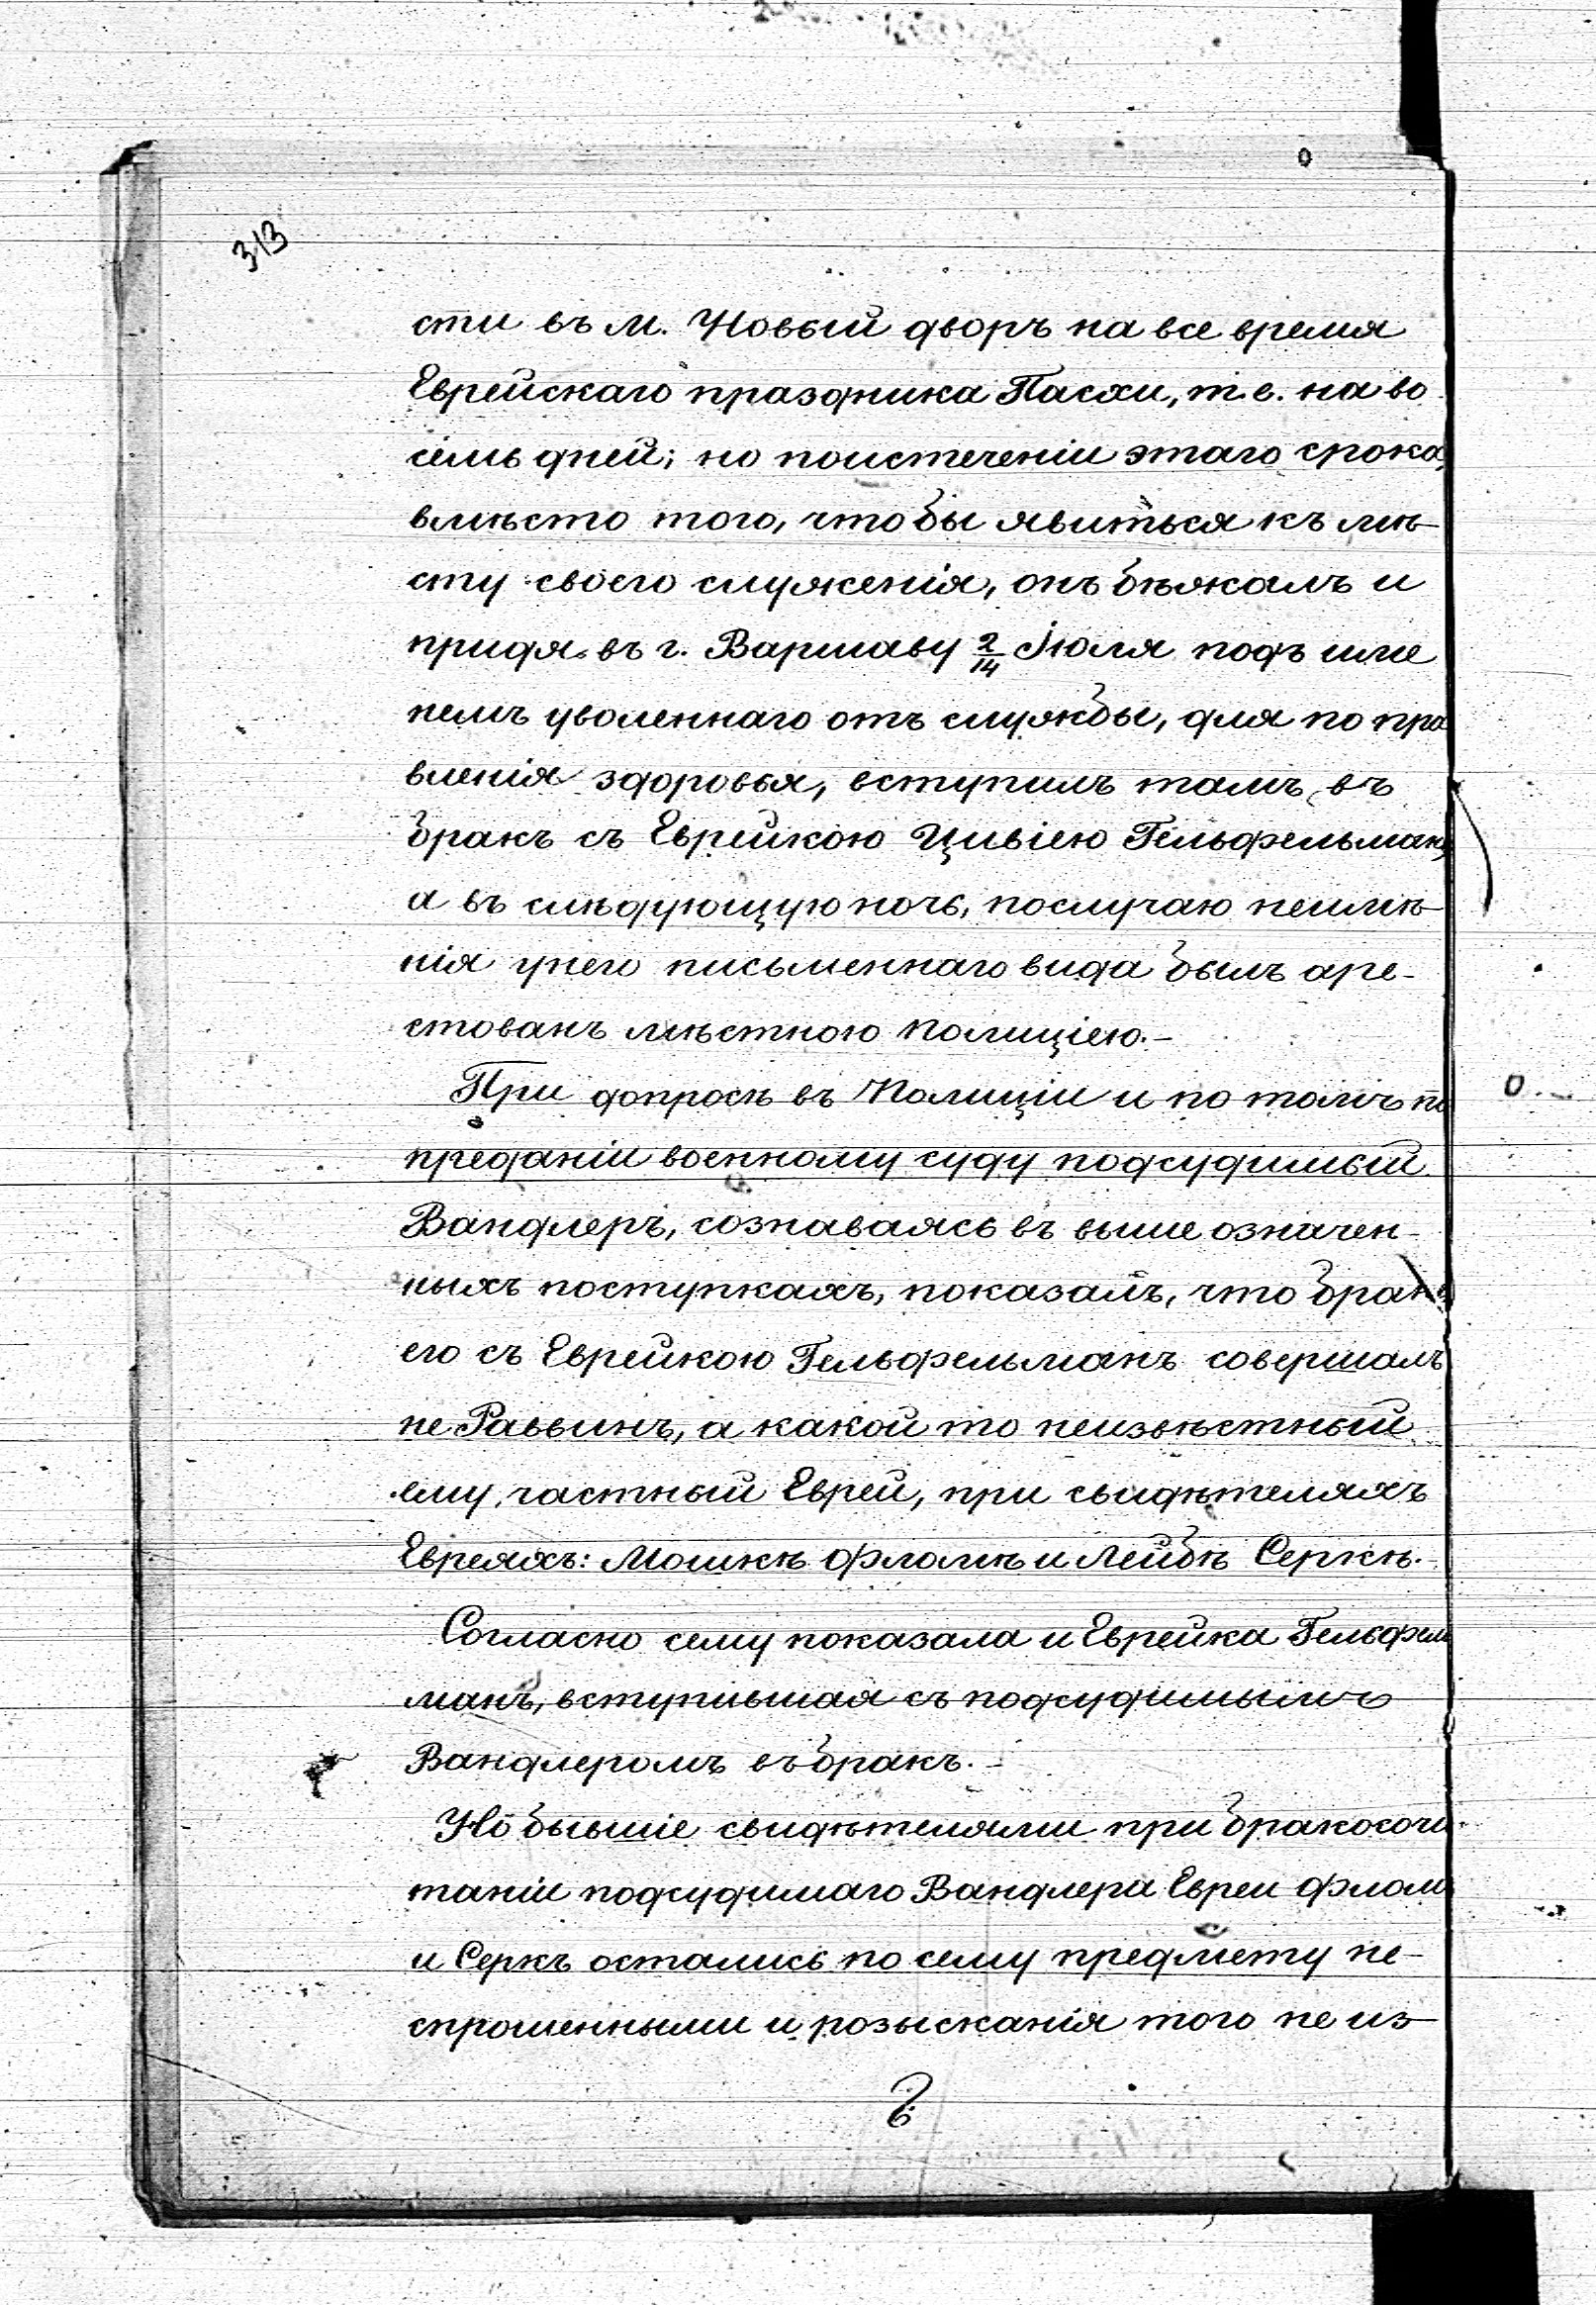 313
сти въ м. Новый дворъ на все время
Еврейскаго праздника Пасхи, т.е. на во
семь дней; но поистеченіи этаго срока,
вмѣсто того, что бы явиться къ мѣ-
сту своего служенія, онъ бѣжалъ и
придя въ г. Варшаву 2/14 Іюля подъ име
немъ уволеннаго отъ службы, для по пра
вленія здоровья, вступилъ тамъ въ
бракъ съ Еврейкою Цивіею Гельфельманъ,
а въ слѣдующую ночь, послучаю неимѣ-
нія унего письменнаго вида былъ аре-
стованъ мѣстною Полиціею.-
При допросѣ въ Полиціи и по томъ по
преданіи военному суду подсудимый
Вандлеръ, сознаваясь въ выше означен-
ныхъ поступкахъ, показалъ, что бракъ
его съ Еврейкою Гельфельманъ совершалъ
не Раввинъ, а какой то неизвѣстный
ему, частный Еврей, при свидѣтеляхъ
Евреяхъ: Мошкѣ Фломѣ и Лейбѣ Серкѣ.-
Согласно сему показала и Еврейка Гельфель
манъ, вступившая съ подсудимымъ
Вандлеромъ въ бракъ.-
Но бывшіе свидѣтелями при бракосоче
таніи подсудимаго Вандлера Евреи Фломъ
и Серкъ остались по сему предмету не-
спрошенными и розысканія того не из-